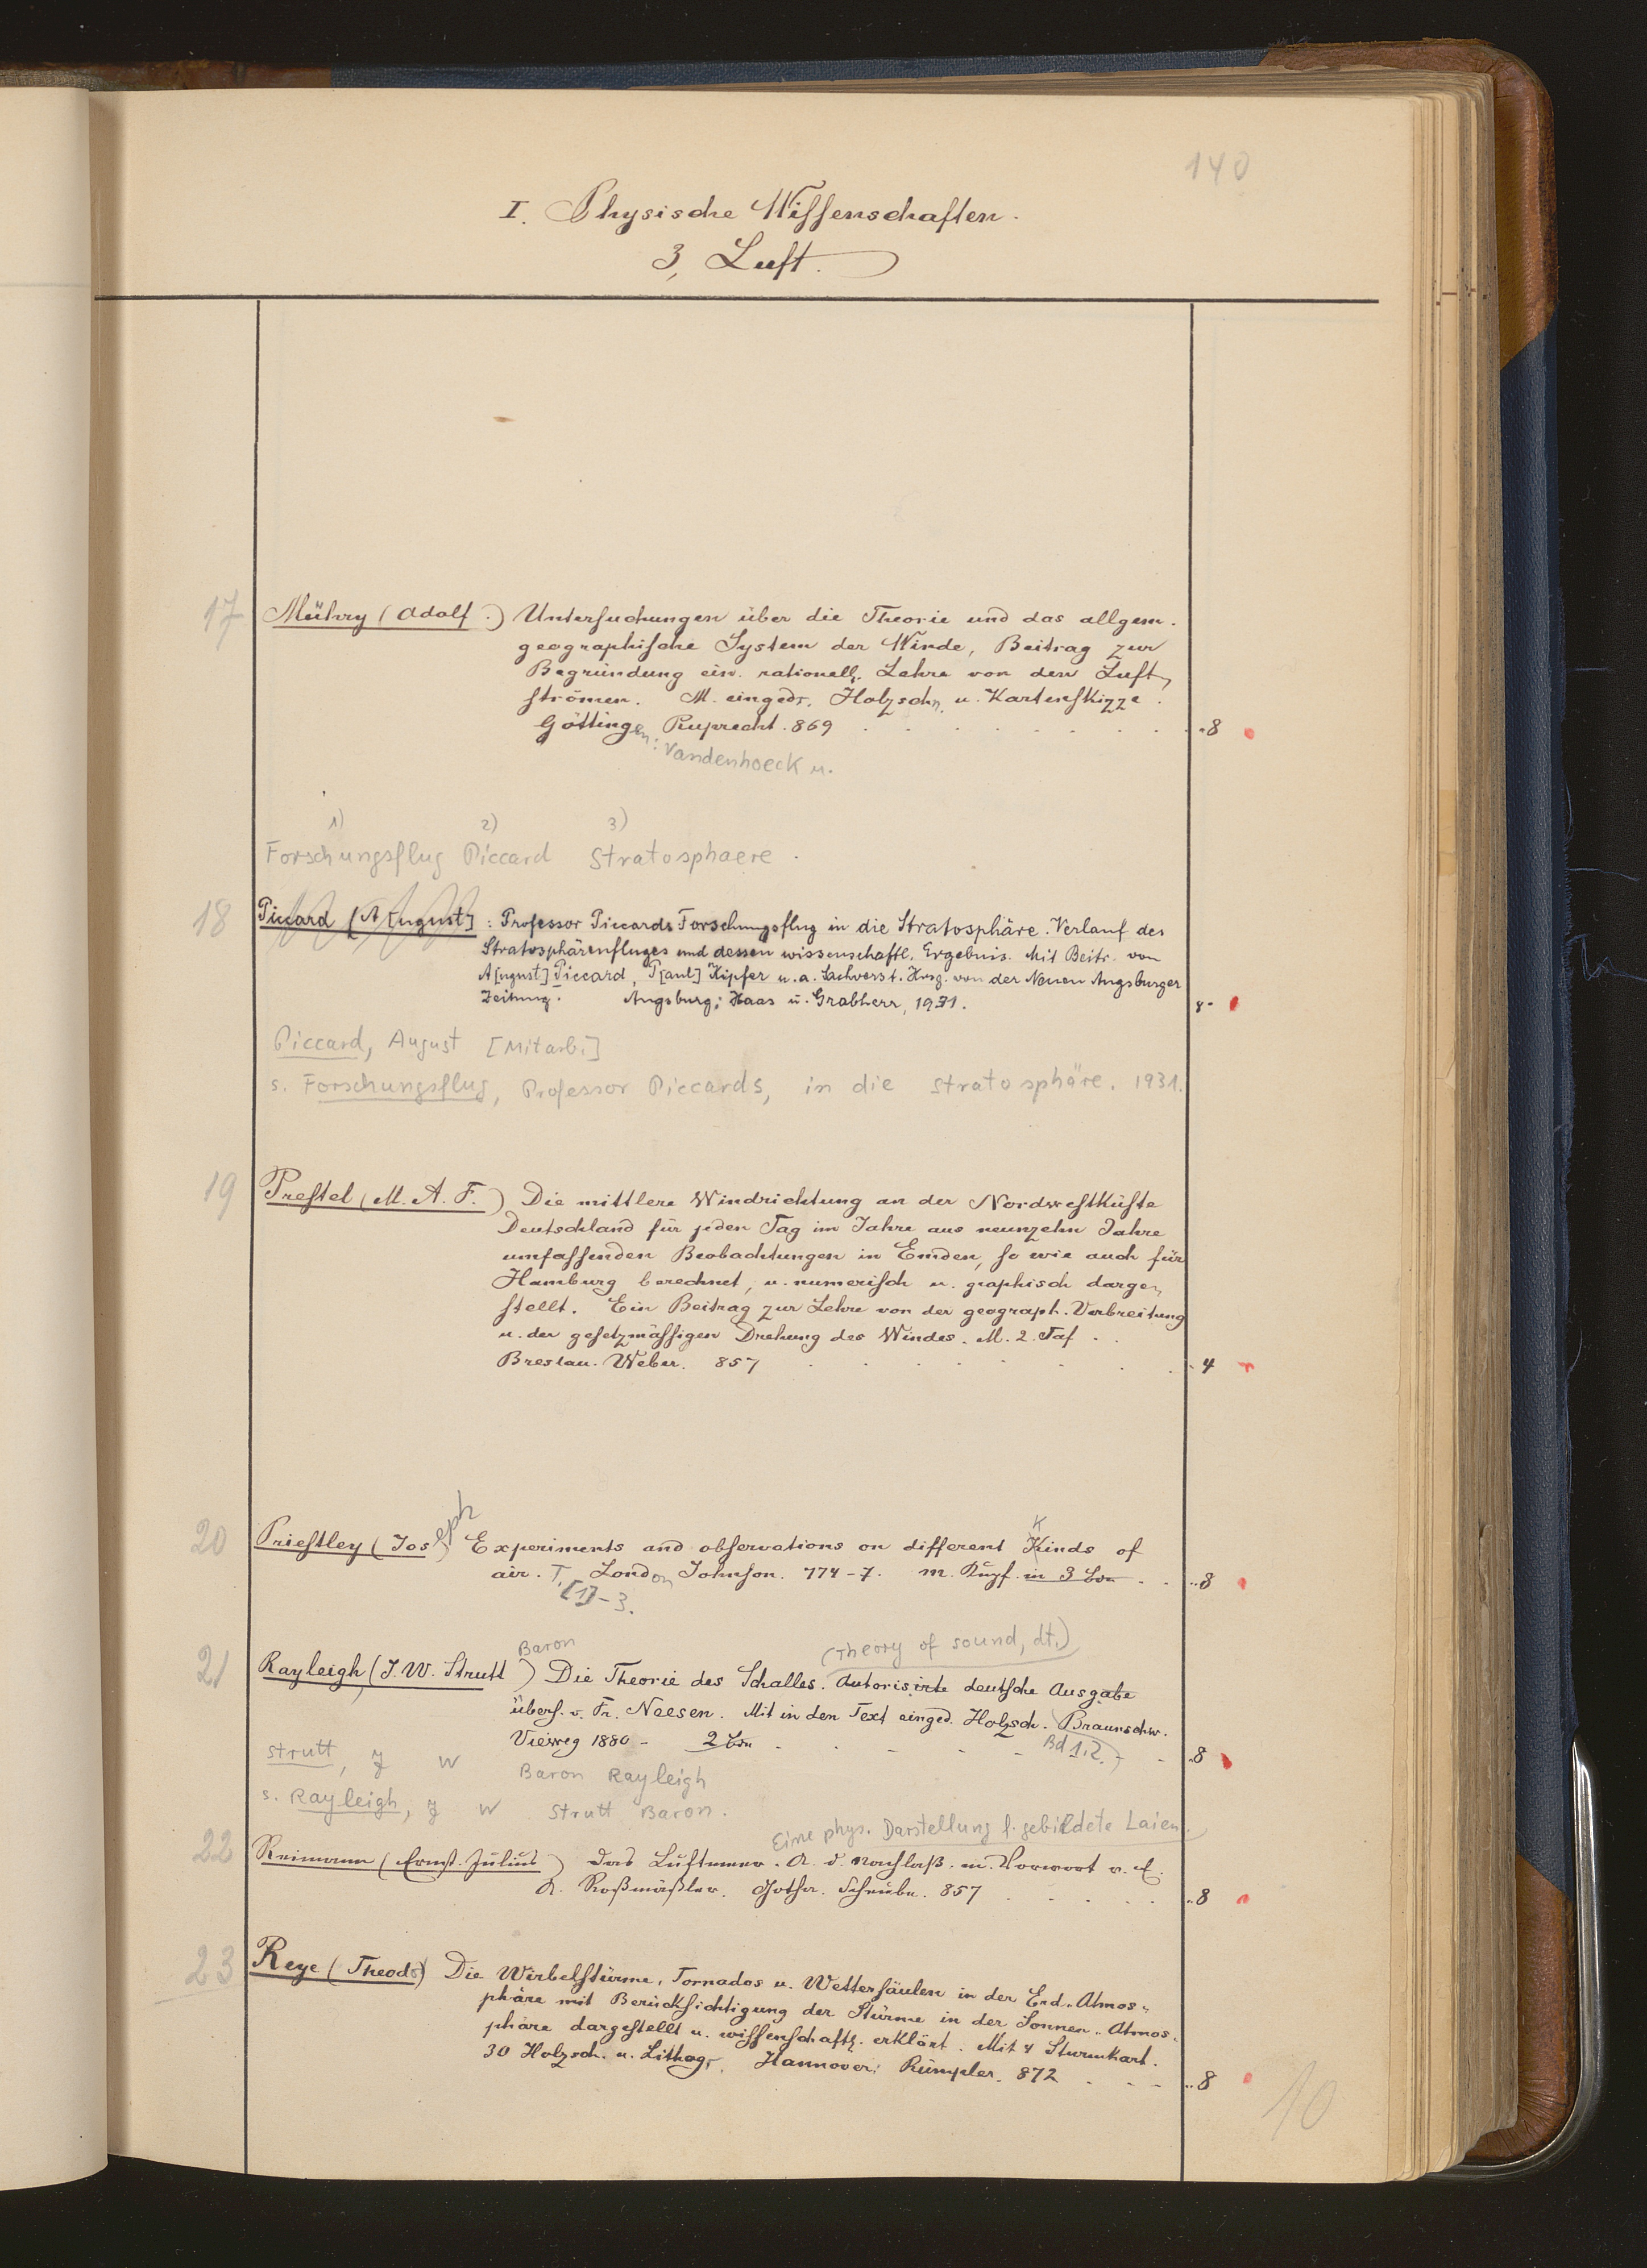 140
I. Physische Wissenschaften.
3, Luft.
17 Mühry (Adolf.) Untersuchungen über die Theorie und das allgem.
geographische System der Winde, Beitrag zur
Begründung ein. rationell. Lehre von den Luft,
strömen. M. eingedr. Holzschn. u. Kartenskizze.
Göttingen: Ruprecht. 869 . . . . . . . . . 8
Vandenhoeck u.
1) 2) 3)
Forschungsflug Piccard Stratosphaere.
18 Piccard [A[ugust] : Professor Piccards Forschungsflug in die Stratosphäre. Verlauf des
Stratosphärenfluges und dessen wissenschaftl. Ergebnis. Mit Beitr. von
A[ugust] Piccard, P[aul] Kipfer u. a. Sachverst. Hrsg. von der Neuen Augsburger
Zeitung. Augsburg: Haas u. Grabherr, 1931. 8°
Piccard, August [Mitarb.]
s. Forschungsflug, Professor Piccards, in die Stratosphäre. 1931.
19 Prestel (M. A. F.) Die mittlere Windrichtung an der Nordwestküste
Deutschland für jeden Tag im Jahre aus neunzehn Jahre
umfassenden Beobachtungen in Emden, so wie auch für
Hamburg berechnet, u. numerisch u. graphisch darge,
stellt. Ein Beitrag zur Lehre von der geograph. Verbreitung
u. der gesetzmässigen Drehung des Windes. M. 2. Taf . .
Breslau. Weber. 857 . . . . . . . . 4
20 Priestley (Joseph) Experiments and observations on different Kinds of
K
air. T. London Johnson. 774-7. m. Kupf. in 3 Bdn . . 8
[1]-3.
Baron (Theory of sound, dt.)
21 Rayleigh (J. W. Strutt) Die Theorie des Schalles. Autorisirte deutsche Ausgabe
übers. v. Fr. Neesen. Mit in den Text einged. Holzsch. Braunschw.
Vieweg 1880 - 2 Bdn - . . - - - Bd 1.2. - - 8
Strutt, J W Baron Rayleigh
s. Rayleigh, J W Strutt Baron.
Eine phys. Darstellung f. gebildete Laien.
22 Reimann (Ernst Julius) Das Luftmeer. A. d. Nachlaß. m. Vorwort v. E.
A. Roßmäßler. Gotha. Scheube. 857 . . . . . 8
23 Reye (Theodor) Die Wirbelstürme, Tornados u. Wettersäulen in der Erd-Atmos-
phäre mit Berücksichtigung der Stürme in der Sonnen-Atmos-
phäre dargestellt u. wissenschaftl. erklärt. Mit 4 Sturmkart.
30 Holzsch. u. Lithogr. Hannover: Rümpler. 872 . - - 8
10